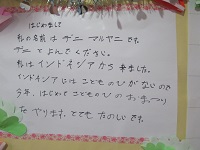 はじめまして
私の名前は デニ マルヤニ です。
デニ と よんで ください。
私は インドネシア から 来ました。
インドネシア には こどものひ が ないので
今年、はじめて こどものひ の おまつり
を やります。とても たのしい です。